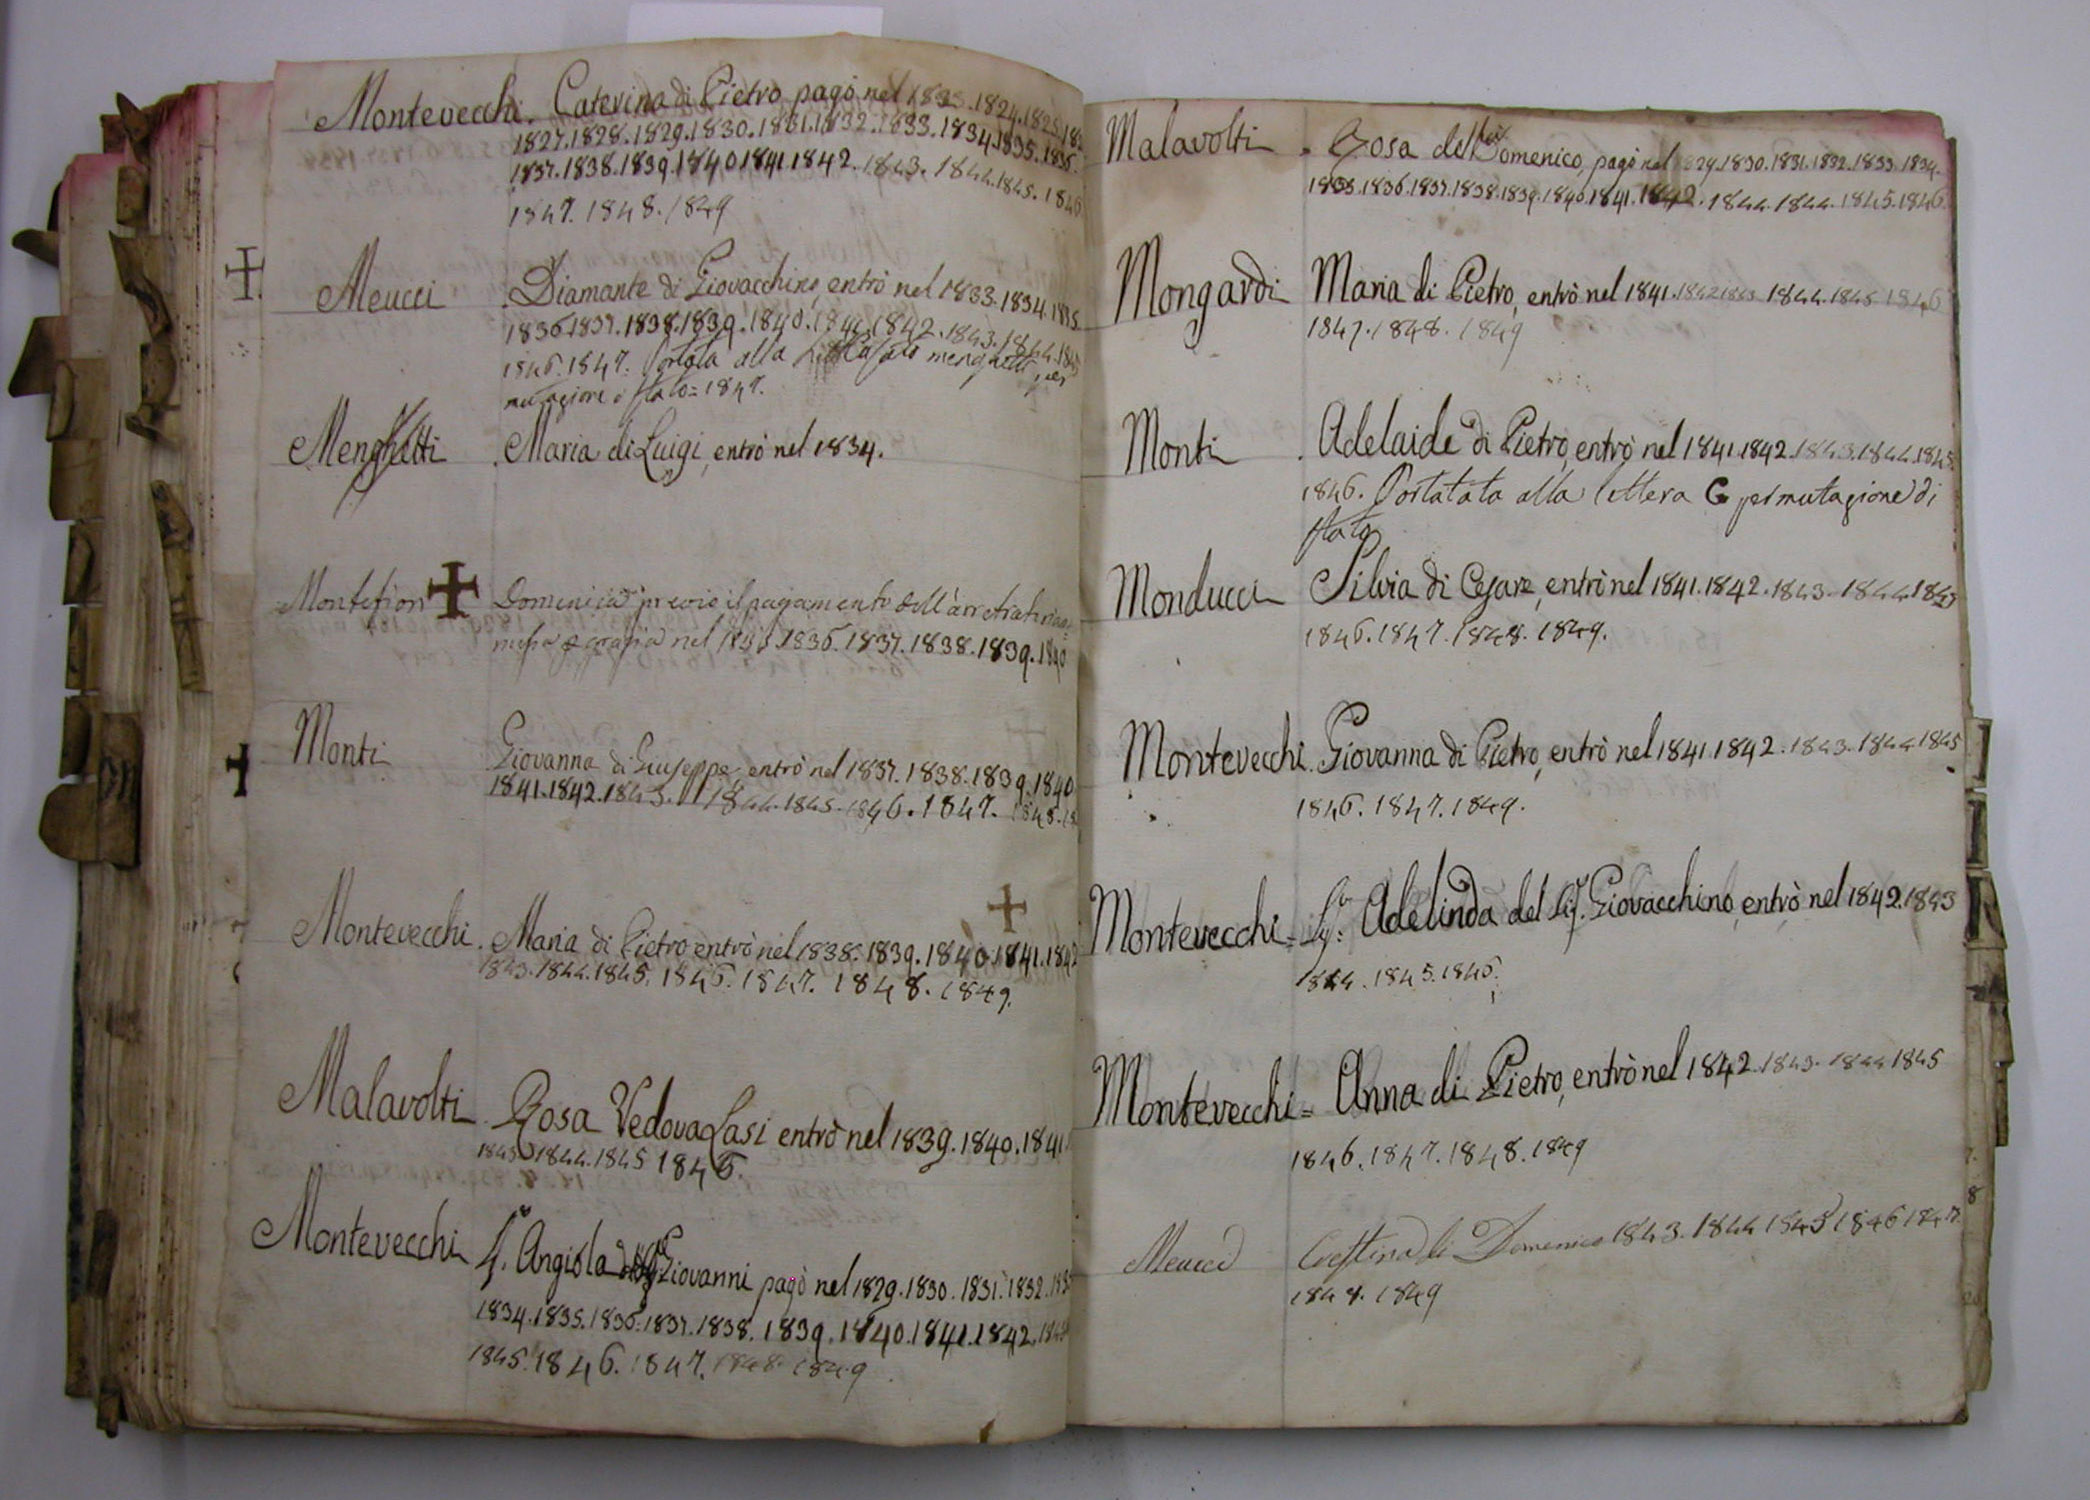 Montevecchi. Caterina di Pietro pagò nel 1823.1824.1825.182
1827.1828.1829.1830.1831.1832.1833.1834.1835.1836.
1837.1838.1839.1840.1841.1842.1843.1844.1845.1846
1847.1848.1849
Meucci Diamante di Giovacchino, entrò nel 1833.1834.1835
1836.1837.1838.1839.1840.1841.1842.1843.1844.1845
1846.1847. Portata alla menghetti, per
mutazione di stato=1847.
Menghetti Maria di Luigi, entrò nel 1834.
Montefiori Domenica previo il pagamento dell'arretrato
p grazia nel 1836.1837.1838.1839.1840
Monti Giovanna di Giuseppe, entrò nel 1837.1838.1839.1840
1841.1842.1843.1844.1845.1846.1847.1848.18
Montevecchi. Maria di Pietro entrò nel 1838.1839.1840.1841.1842
1843.1844.1845.1846.1847.1848.1849.
Malavolti Rosa Vedova Lasi entrò nel 1839.1840.1841
1843.1844.1845 1846.
Montevecchi Sra Angiola Giovanni pagò nel 1829.1830.1831.1832.183
1834.1835.1836.1837.1838.1839.1840.1841.1842.1843
1845.1846.1847.1848.1849
Malavolti. Rosa del Domenico, pagò nel 1829.1830.1831.1832.1833.1834.
1835.1836.1837.1838.1839.1840.1841.1842.1844.1844.1845.1846.
Mongardi Maria di Pietro, entrò nel 1841.1842.1843.1844.1845.1846
1847.1848.1849
Monti. Adelaide di Pietro, entrò nel 1841.1842.1843.1844.1845.
1846. Portatata alla lettera G per mutazione di
stato
Monducci Silvia di Cesare, entrò nel 1841.1842.1843.1844.1845
1846.1847.1848.1849.
Montevecchi. Giovanna di Pietro, entrò nel 1841.1842.1843.1844.1845
1846.1847.1849.
Montevecchi= Sigra: Adelinda del Sigr. Giovacchino, entrò nel 1842.1843
1844.1845.1846.
Montevecchi= Anna di Pietro, entrò nel 1842.1843.1844 1845
1846.1847.1848.1849
Meucci Cristina di Domenico 1843.1844 1845 1846 1847.
1848.1849